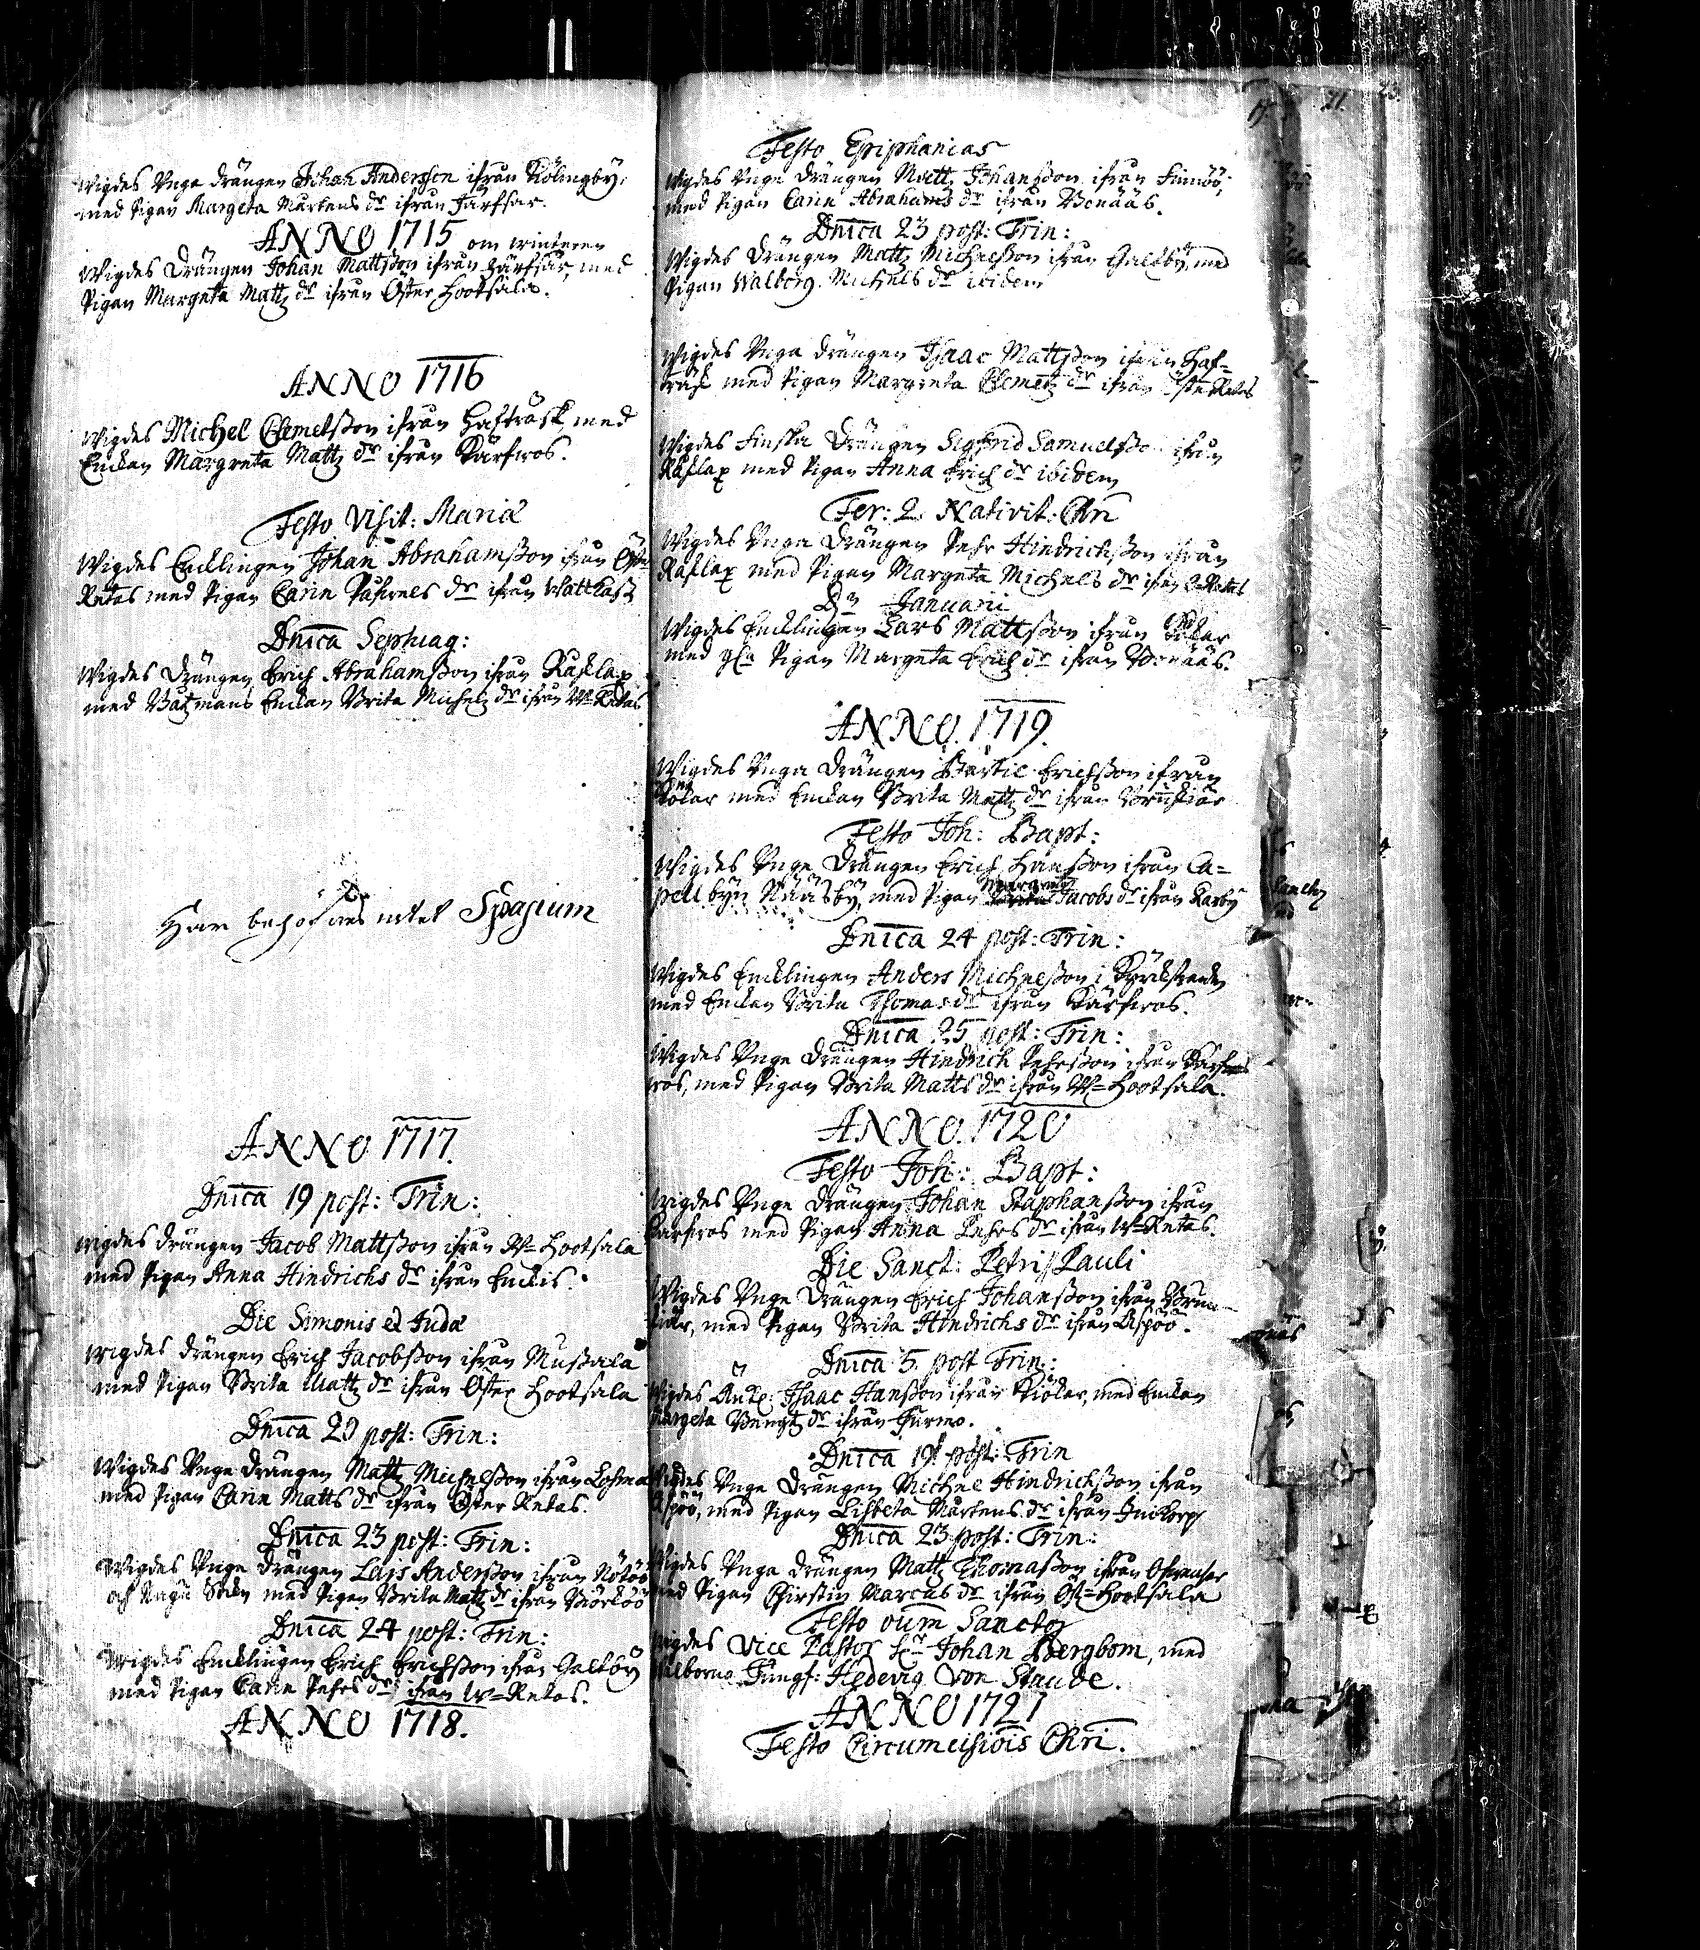 Wigdes Unge drängen Johan Andersson ifrån Kiölingby,
med Pigan Margeta Mårtens dr ifrån Järfsar.
ANNO 1715 om winteren
Wigdes Drängen Johan Mattsson ifrån Järfsar, med
Pigan Margeta Mattz dr ifrån Öster Hootsala.
ANNO 1716
Wigdes Michel Clemetsson ifrån Hafträsk, med
Enckan Margreta Mattz dr ifrån Kårfwos.
Festo Visit: Mariæ
Wigdes Encklingen Johan Abrahamsson ifrån Öster
Retas med Pigan Carin Påfwels dr ifrån Wattkast
Dnica Septuag:
Wigdes Drängen Erich Abrahamsson ifrån Råflax
med Båtzmans Enckan Brita Michelz dr ifrån W= Retas
Här behöfdes intet Spatium
ANNO 1717.
Dnica 19 post: Trin:
Wigdes drängen Jacob Mattsson ifrån W= Hootsala
med Pigan Anna Hindrichs dr ifrån Enckis.
Die Simonis et Judæ
Wigdes drängen Erich Jacobsson ifrån Mussala
med Pigan Brita Mattz dr ifrån Öster Hootsala
Dnica 20 post: Trin:
Wigdes Unge drängen Mattz Michelsson ifrån Lohm
med Pigan Carin Matts dr ifrån Öster Retas.
Dnica 23 post: Trin:
Wigdes Unge drängen Lars Andersson ifrån Nötöö
och Nagu Sokn med Pigan Brita Mattz dr ifrån Björköö
Dnica 24 post: Trin:
Wigdes Encklingen Erich Erichsson ifrån Galtby
med Pigan Carin Pehrs dr ifrån W= Retas.
ANNO 1718.
Festo Epiphanias
Wigdes Unge drängen Mattz Johansson ifrån Finnöö,
med Pigan Carin Abrahams dr ifrån Benääs.
Dnica 23 post: Trin:
Wigdes Drängen Mattz Michelsson ifrån Galtby, med
Pigan Walborg Michels dr ibidem
Wigdes Unga drängen Isaac Mattsson ifrån Haf=
träsk med Pigan Margreta Clemetz dr ifrån Öster Retas
Wigdes Finska Drängen Sigfrid Samuelsson ifrån
Råflax med Pigan Anna Erich dr ibidem
Fer: 2. Nativit: Chri
Wigdes Unga Drängen Pehr Hindrichsson ifrån
Råflax med Pigan Margeta Michels dr ifrån Retas
Januarii
Wigdes Encklingen Lars Mattsson ifrån Kökar
med Pigan Margeta Erich dr ifrån Benääs.
ANNO. 1719.
Wigdes Unga Drängen Bertil Erichsson ifrån
Kökar med Enckan Brita Mattz dr ifrån Brunskiär
Festo Joh: Bapt:
Wigdes Unge Drängen Erich Hansson ifrån Ca=
pell byn Nääsby, med Pigan Margeta Jacobs dr ifrån Karby
Dnica 24 post: Trin:
Wigdes Encklingen Anders Michelsson i Kyrkstranden
med Enckan Brita Thomas dr ifrån Kårfwos.
Dnica 25 post: Trin:
Wigdes Unge Drängen Hindrich Pehrsson ifrån Kårf
wos, med Pigan Brita Matts dr ifrån W= Hootsala.
ANNO. 1720
Festo Joh: Bapt:
Wigdes Unge Drängen Johan Staphansson ifrån
Kårfwos med Pigan Anna Pehrs dr ifrån W= Retas.
Die Sanct: Petri Pauli
Wigdes Unge Drängen Erich Johansson ifrån Brun=
skiär, med Pigan Brita Hindrichs dr ifrån Aspöö.
Dnica 5. post Trin:
Wigdes Isaac Hansson ifrån Kiökar, med Enckan
Margeta Bengtz dr ifrån Jurmo.
Dnica 19 post: Trin
Wigdes Unge Drängen Michel Hindrichsson ifrån
Aspöö, med Pigan Lisbeta Mårtens dr ifrån
Dnica 23 post: Trin:
Wigdes Unga Drängen Mattz Thomasson ifrån
med Pigan Chirstin Marcus dr ifrån Öst= Hootsala
Festo oium Sanctor
Wigdes Vice Pastor Hr Johan Bergbom, med
Wälborna Jungf: Hedevig Von Staude.
ANNO 1721
Festo Circumcisiois Chri.